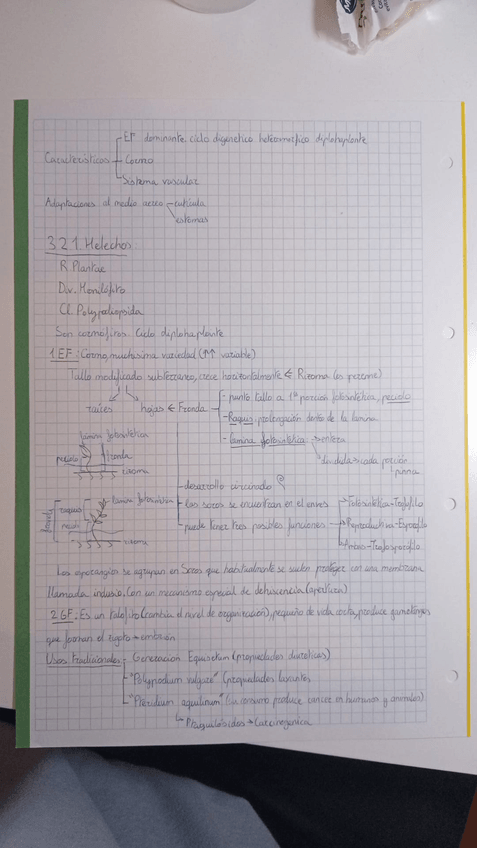 EF dominante. ciclo digenético heteromórfico diplohaplonte
Características Cormo
Sistema vascular
Adaptaciones al medio aereo cutícula
estomas
3.2.1. Helechos:
R. Plantae
Div. Monilófito
Cl. Polypodiopsida
Son cormofitos. Ciclo diplohaplonte
1. EF: Cormo, muchisima variedad (↑↑ variable)
Tallo modificado subterraneo, crece horizontalmente ← Rizoma (es perenne)
raíces hojas ← Fronda
- punto tallo a 1ª porción fotosintética, peciolo
- Raquis: prolongación dentro de la lamina
- lamina fotosintética → entera
dividida → cada porción
pinna
lamina fotosintética
peciolo fronda
rizoma
- desarrollo circinado
- Los soros se encuentran en el envés
- puede tener tres posibles funciones
Fotosintética - Trofofilo
Reproductiva - Esporofilo
Ambas - Trofosporofilo
fronda raquis lamina fotosintética
peciolo
rizoma
Los esporangios se agrupan en Soros que habitualmente se suelen proteger con una membrana
llamada indusio. Con un mecanismo especial de dehiscencia (apertura)
2. GF. Es un talofito (cambia el nivel de organización), pequeño de vida corta, produce gametangios
que forman el zigoto → embrión
Usos tradicionales - Generación Equisetum (propiedades diureticas)
- "Polypodium vulgare" (propiedades laxantes
- "Pteridium aquilinum" (su consumo produce cancer en humanos y animales)
↳ Ptaquilósidos → Carcinogénica